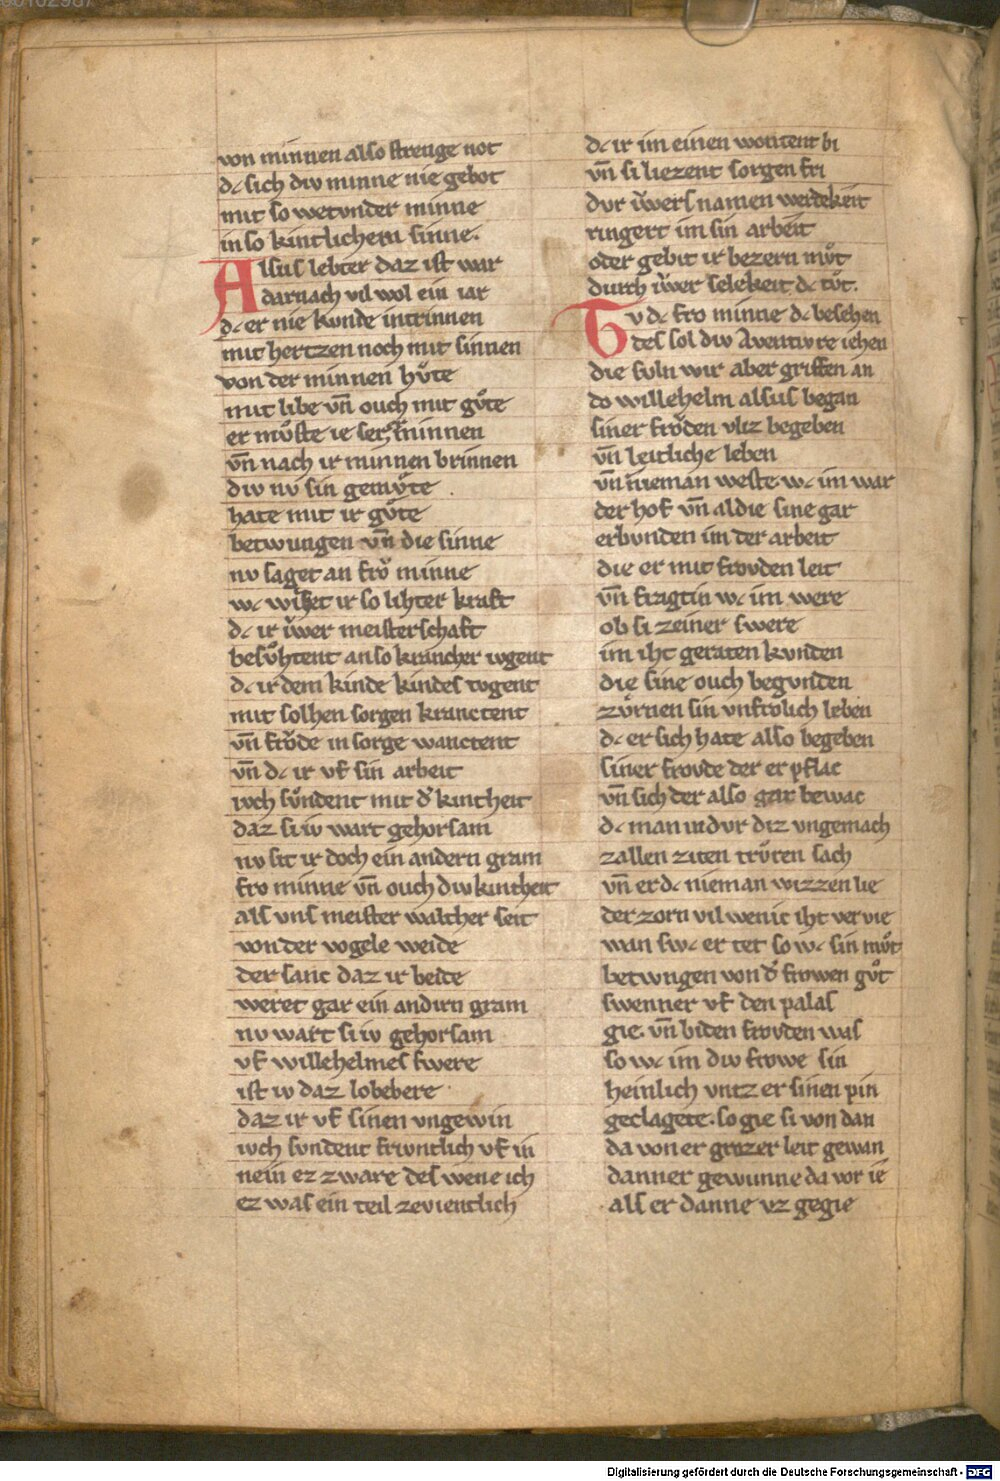 von minnen also strenge not
dc sich div minne nie gebot
mit so wetvnder minne
in so kintlichem sinne.
Alsus lebter daz ist war
darnach vil wol ein iar
dc er nie kvnde intrinnen
mit hertzen noch mit sinnen
von der minnen hvͦte
mit libe vn̄ ouch mit gvͦte
er mvͦste ie ser minnen
vn̄ nach ir minnen brinnen
div nv sin gemvͤte
hate mit ir gvͤte
betwungen vn̄ die sinne
nv saget an frov minne
wc wiset ir so lihter kraft
dc ir v̓wer meisterschaft
besvͦhtent an so krancher ivgent
dc ir dem kinde kindes tvgent
mit solhen sorgen kranctent
vn̄ froͤde in sorge wanctent
vn̄ dc ir vf sin arbeit
ivch svndent mit d̓ kintheit
daz si iv wart gehorsam
nv sit ir doch ein andern gram
fro minne vn̄ ouch div kintheit
als vns meister walther seit
von der vogele weide
der sanc daz ir beide
weret gar ein andirn gram
nv wart si iv gehorsam
vf willehelmes swere
ist iv daz lobebere
daz ir vf sinen vngewin
ivch svndent frivntlich vf in
nein ez zware des wene ich
ez was ein teil zevientlich
dc ir im einen wontent bi
vn̄ si liezent sorgen fri
dvr iv̓wers namen werdekeit
ringert im sin arbeit
oder gebit ir bezern mvͦt
durch v̓wer selekeit dc tvͦt.
Tv dc fro minne dc besehen
des sol div Aventivre iehen
die svln wir aber griffen an
do willehelm alsus began
siner froͤden vliz begeben
vn̄ leitliche leben
vn̄ nieman weste. wc im war
der hof vn̄ al die sine gar
erbvnden im der arbeit
die er mit frovden leit
vn̄ fragtin wc im were
ob si zeiner swere
im iht geraten kvnden
die sine ouch begvnden
zvͤrnen sin vnfrolich leben
dc er sich hate also begeben
siner frovde der er pflac
vn̄ sich der also gar bewac
dc man in dvr diz vngemach
zallen ziten trvͤren sach
vn̄ er dc nieman wizzen lie
der zorn vil wenic iht vervie
wan swc er tet so wc sin mvͦt
betwngen von d̓ frowen gvͦt
swenner vf den palas
gie. vn̄ biden frovden was
so wc im div frowe sin
heinlich vntz er sinen pin
geclagete. so gie si von dan
da von er grozer leit gewan
danner gewunne da vor ie
als er danne vz gegie
Digitalisierung gefördert durch die Deutsche Forschungsgemeinschaft - DFG